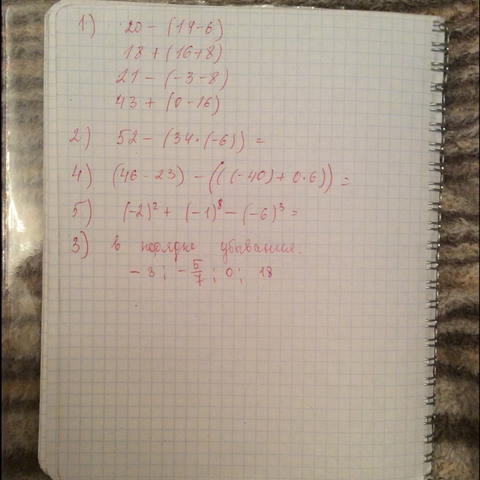 1) 20 - (14-6)
18 + (16+8)
21 - (-3-8)
43 + (0-16)
2) 52 - (34·(-6)) =
4) (46-23) - (((-40)+0·6)) =
5) (-2)² + (-1)⁸ - (-6)³ =
3) в порядке убывания.
-3; -5/7; 0; 18